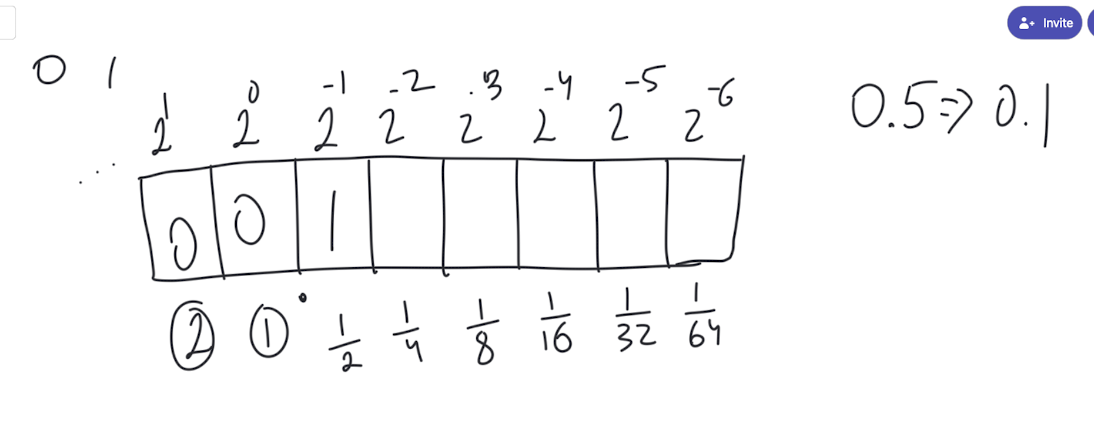 Invite
0 1
2¹ 2⁰ 2⁻¹ 2⁻² 2⁻³ 2⁻⁴ 2⁻⁵ 2⁻⁶
0.5 => 0.1
...
0 0 1
2 1 . 1/2 1/4 1/8 1/16 1/32 1/64